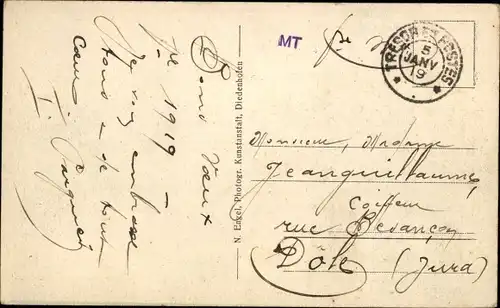 MT
TRESOR ET POSTES
5
JANV
19
Bons Vœux
pr 1919 -
Je vous embrasse
tous de tout
cœur
N. Engel, Photogr. Kunstanstalt, Diedenhofen
Monsieur, Madame
Jeanguillaume,
Coiffeur
rue Besançon
Dôle (Jura)